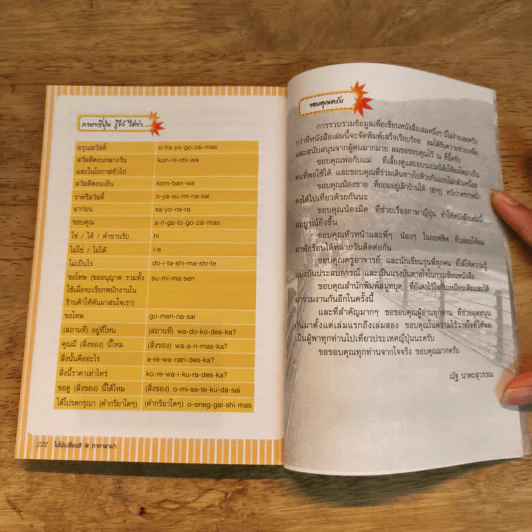 ภาษาญี่ปุ่น รู้ไว้ ใช่ว่า...
อรุณสวัสดิ์ o-ha-yo-go-zai-mas
สวัสดีตอนกลางวัน kon-ni-chi-wa
และในโอกาสทั่วไป
สวัสดีตอนเย็น kom-ban-wa
ราตรีสวัสดิ์ o-ya-su-mi-na-sai
ลาก่อน sa-yo-na-ra
ขอบคุณ a-ri-ga-to-go-zai-mas
ใช่ / ได้ / คำขานรับ hi
ไม่ใช่ / ไม่ได้ i-e
ไม่เป็นไร do-i-ta-shi-ma-shi-te
ขอโทษ (ขออนุญาต รวมทั้ง su-mi-ma-sen
ใช้เมื่อจะเรียกพนักงานใน
ร้านค้าให้หันมาสนใจเรา)
ขอโทษ go-men-na-sai
(สถานที่) อยู่ที่ไหน (สถานที่) wa-do-ko-des-ka?
คุณมี (สิ่งของ) นี้ไหม (สิ่งของ) wa-a-ri-mas-ka?
สิ่งนั้นคืออะไร a-re-wa-nan-des-ka?
สิ่งนี้ราคาเท่าไหร่ ko-re-wa-i-ku-ra-des-ka?
ขอดู (สิ่งของ) นี้ได้ไหม (สิ่งของ) o-mi-se-te-ku-da-sai
ได้โปรดกรุณา (คำกริยาใดๆ) (คำกริยาใดๆ) o-oneg-gai-shi-mas
222 ใบไม้เปลี่ยนสี
ขอบคุณครับ
การรวบรวมข้อมูลเพื่อเขียนหนังสือเล่มหนึ่งๆ นี้ไม่ง่ายเลยครับ
กว่าที่หนังสือเล่มนี้จะจัดพิมพ์เสร็จเรียบร้อย ผมได้รับความช่วยเหลือ
และสนับสนุนจากผู้คนมากมาย ผมขอขอบคุณไว้ ณ ที่นี้ครับ
ขอบคุณพ่อกับแม่
ขอบคุณน้องชาย
คงได้ไปเที่ยวด้วยกันนะ
ขอบคุณน้องมิค ที่ช่วยเรื่องภาษาญี่ปุ่น ทำให้หนังสือเล่มนี้
สมบูรณ์ยิ่งขึ้น
ขอบคุณหัวหน้าและพี่ๆ น้องๆ ในออฟฟิศ
มาพักร้อนได้หลายวันติดต่อกัน
ขอบคุณครูอาจารย์ และนักเขียนรุ่นพี่ทุกคน ที่ได้ให้ความรู้
แบ่งปันประสบการณ์ และเป็นแรงบันดาลใจในการเขียนหนังสือ
ขอบคุณสำนักพิมพ์
มาร่วมงานกันอีกในครั้งนี้
และที่สำคัญมากๆ ขอขอบคุณผู้อ่านทุกท่าน ที่ช่วยอุดหนุน
กันมาตั้งแต่เล่มแรกถึงเล่มสอง ขอบคุณในความไว้วางใจที่ให้ผม
เป็นผู้พาทุกท่านไปเที่ยวประเทศญี่ปุ่นนะครับ
ขอขอบคุณทุกท่านจากใจจริง ขอบคุณมากครับ
ณัฐ